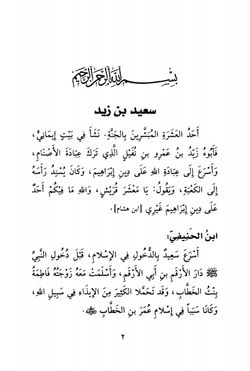 بسم الله الرحمن الرحيم
سعيد بن زيد
أَحَدُ الْعَشَرَةِ الْمُبَشَّرِينَ بِالْجَنَّةِ. نَشَأَ فِي بَيْتٍ إِيمَانِيٍّ،
فَأَبُوهُ زَيْدُ بْنُ عَمْرِو بْنِ نُفَيْلٍ الَّذِي تَرَكَ عِبَادَةَ الْأَصْنَامِ،
وَأَسْرَعَ إِلَى عِبَادَةِ اللهِ عَلَى دِينِ إِبْرَاهِيمَ، وَكَانَ يُسْنِدُ رَأْسَهُ
إِلَى الْكَعْبَةِ، وَيَقُولُ: يَا مَعْشَرَ قُرَيْشٍ، وَاللهِ مَا فِيكُمْ أَحَدٌ
عَلَى دِينِ إِبْرَاهِيمَ غَيْرِي [ابن هشام].
ابنُ الحَنِيفِيِّ:
أَسْرَعَ سَعِيدٌ بِالدُّخُولِ فِي الْإِسْلَامِ، قَبْلَ دُخُولِ النَّبِيِّ
ﷺ دَارَ الْأَرْقَمِ بْنِ أَبِي الْأَرْقَمِ، وَأَسْلَمَتْ مَعَهُ زَوْجَتُهُ فَاطِمَةُ
بِنْتُ الْخَطَّابِ، وَقَدْ تَحَمَّلَا الْكَثِيرَ مِنَ الْإِيذَاءِ فِي سَبِيلِ اللهِ،
وَكَانَا سَبَبًا فِي إِسْلَامِ عُمَرَ بْنِ الْخَطَّابِ
٢